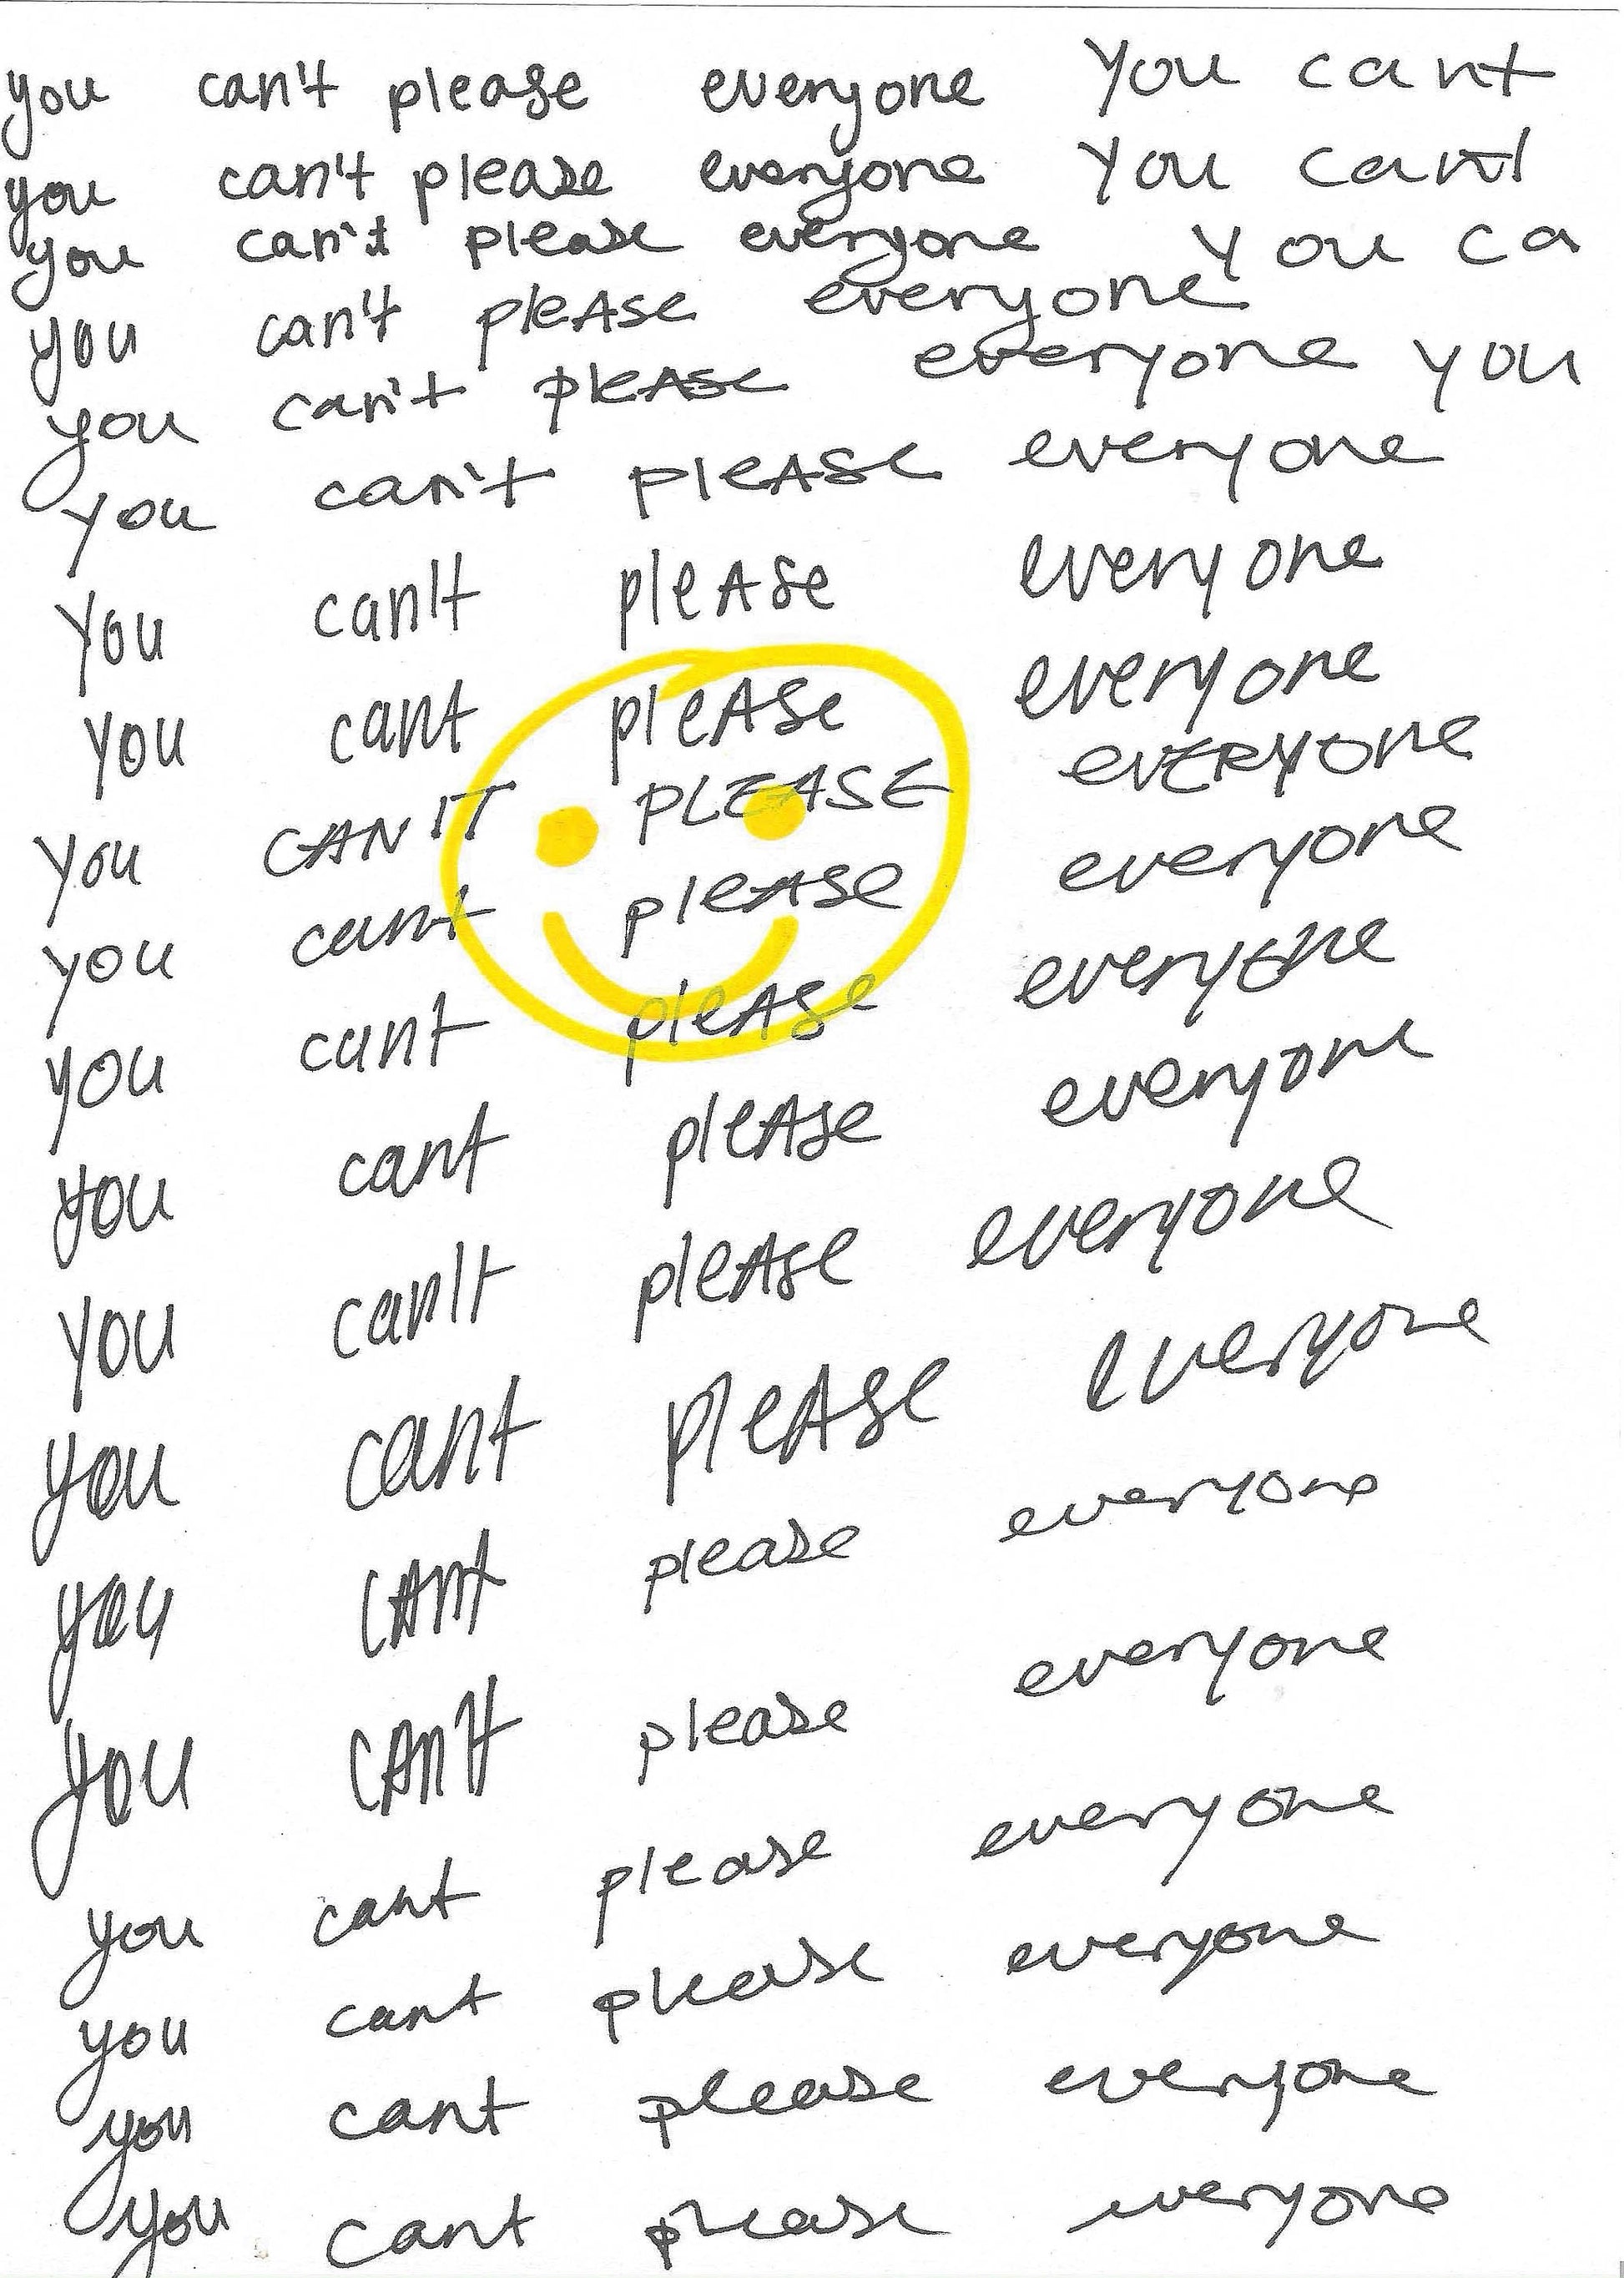 you can't please everyone You cant
you can't please everyone You cant
you can't please everyone You ca
you can't pleAse everyone
you can't pleAse everyone you
you can't pleAse everyone
You can't pleAse everyone
you cant pleAse everyone
you CAN'T PLEASE evERYone
you cant pleAse everyone
you cant pleAse everyone
you cant pleAse everyone
you can't pleAse everyone
you cant pleAse everyone
you cAnt please everyone
you cAn't please everyone
you cant please everyone
you cant please everyone
you cant please everyone
you cant please everyone